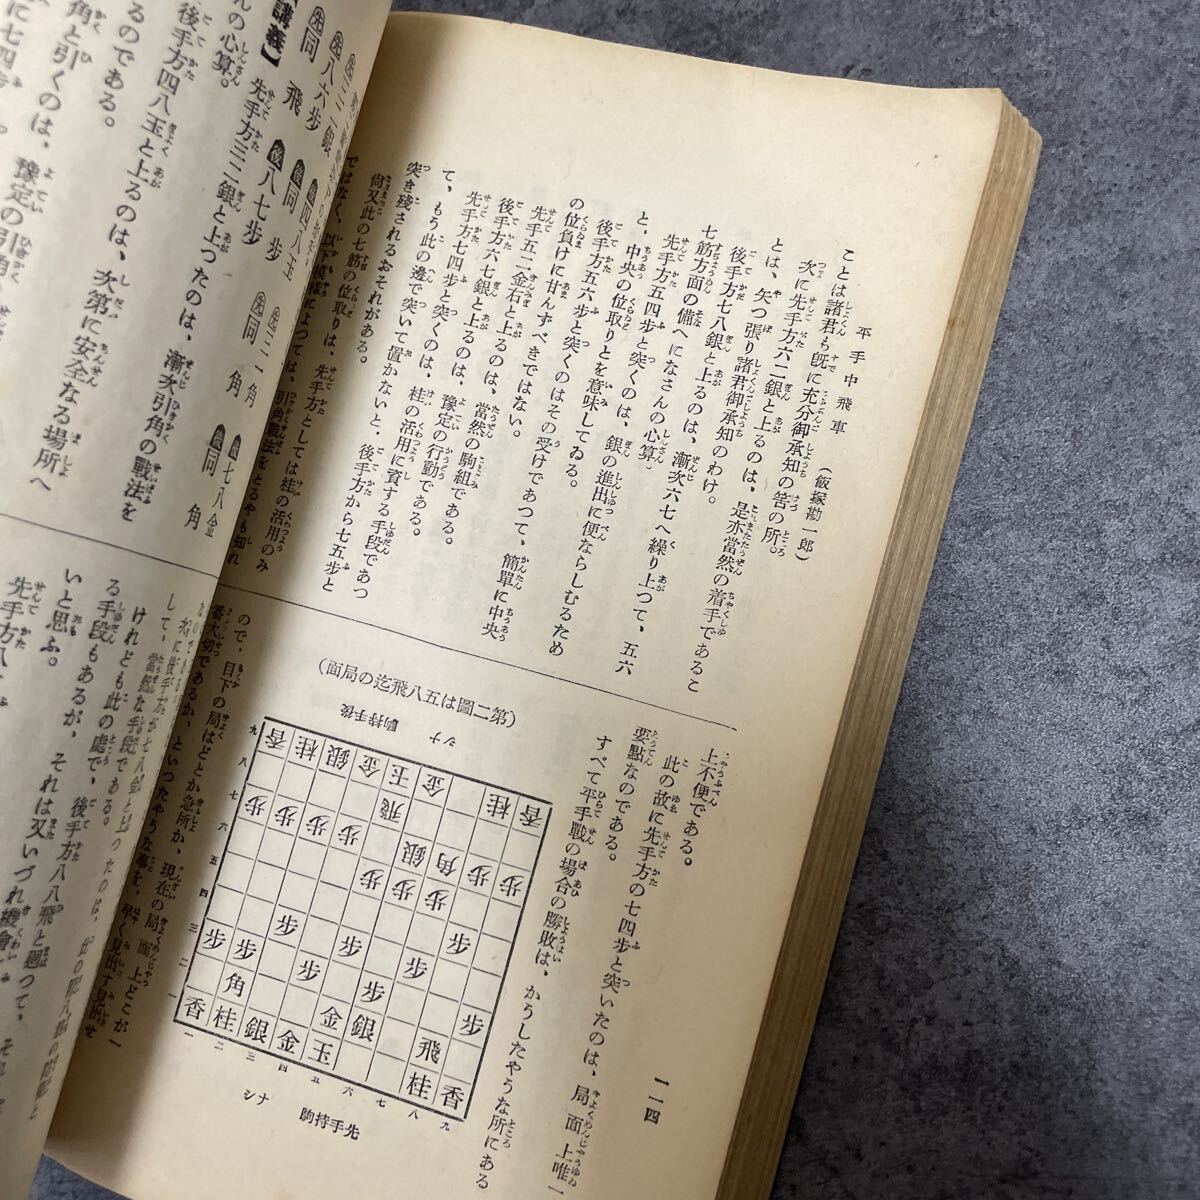 平手中飛車
(飯塚勘一郎)
一一四
ことは諸君も既に充分御承知の筈の所。
次に先手方六二銀と上るのは、是亦當然の着手であるこ
とは、矢つ張り諸君御承知のわけ。
後手方七八銀と上るのは、漸次六七へ繰り上つて、五六
七筋方面の備へになさんの心算。
先手方五四歩と突くのは、銀の進出に便ならしむるため
と、中央の位取りとを意味してゐる。
後手方五六歩と突くのはその受けであつて、簡單に中央
の位負けに甘んずべきではない。
先手五二金右と上るのは、當然の駒組である。
後手方六七銀と上るのは、豫定の行動である。
先手方七四歩と突くのは、桂の活用に資する手段であつ
て、もう此の邊で突いて置かないと、後手方から七五歩と
突き殘されるおそれがある。
尚又此の七筋の位取りは、先手方としては桂の活用のみ
上不便である。
此の故に先手方の七四歩と突いたのは、局面上唯一
要點なのである。
すべて平手戰の場合の勝敗は、かうしたやうな所にある
(第二圖は五八飛迄の局面)
後手持駒 ナシ
九 八 七 六 五 四 三 二 一
香 桂 銀 金 玉 金 桂 香
飛
歩 歩 歩 歩 銀 角 歩 歩
歩 歩 歩
歩 歩 歩 歩 歩 歩 歩 歩 歩
角 金 銀 飛
香 桂 銀 金 玉 桂 香
一 二 三 四 五 六 七 八 九
先手持駒 ナシ
ので、目下の局はどこが急所か、現在の局面上どこが一
番大切であるか、といつたやうな事を、早く見出す
先同 飛
先八六歩
後同 歩
後八七歩
先同 角
後同 角
後四八玉
後七八金
【講義】 先手方三二銀と上つたのは、漸次引角の戰法を
んの心算。
後手方四八玉と上るのは、次第に安全なる場所へ
るのである。
角と引くのは、豫定の引角
けれども此の處で、後手方八八飛と廻つて、
る手段もあるが、それは又いづれ機會
いと思ふ。
先手方八